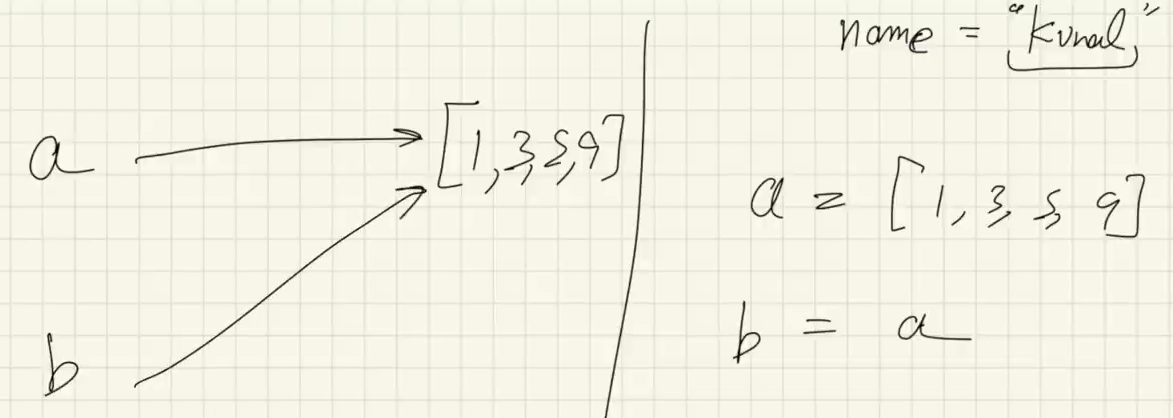 a [1,3,5,9]
b
name = "Kunal"
a = [1, 3, 5, 9]
b = a